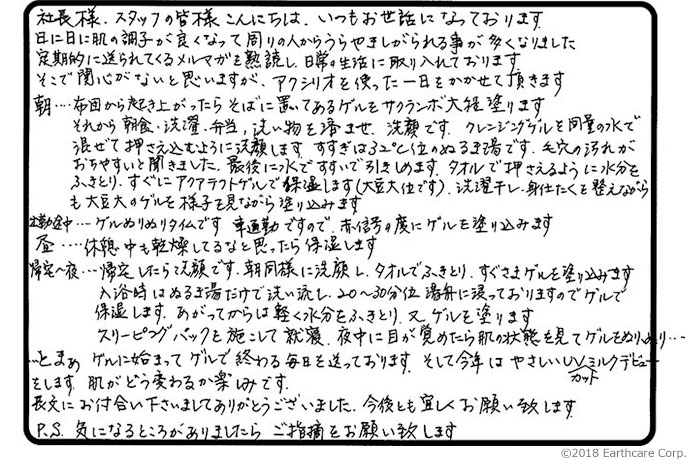 社長様、スタッフの皆様こんにちは、いつもお世話になっております
日に日に肌の調子が良くなって周りの人からうらやましがられる事が多くなりました
定期的に送られてくるメルマガを熟読し日常の生活に取り入れております
そこで関心がないと思いますが、アクシリオを使った一日をかかせて頂きます
朝…布団から起き上がったらそばに置いてあるゲルをサクランボ大位塗ります
それから朝食・洗濯・弁当、洗い物を済ませ、洗顔です。クレンジングゲルを同量の水で
混ぜて押さえ込むように洗顔します。すすぎは32℃位のぬるま湯です。毛穴の汚れが
おちやすいと聞きました。最後に水ですすいで引きしめます。タオルで押さえるように水分を
ふきとり、すぐにアクアラフトゲルで保湿します(大豆大位です)。洗濯干し・身仕たくを整えながら
も大豆大のゲルを様子を見ながら塗り込みます
出勤途中…ゲルぬりぬりタイムです 車通勤ですので、赤信号の度にゲルを塗り込みます
昼…休憩中も乾燥してるなと思ったら保湿します
帰宅〜夜…帰宅したら洗顔です。朝同様に洗顔し、タオルでふきとり、すぐさまゲルを塗り込みます
入浴時はぬるま湯だけで洗い流し、20〜30分位湯舟に浸っておりますのでゲルで
保湿します。あがってからは軽く水分をふきとり、又ゲルを塗ります
スリーピングパックを施こして就寝、夜中に目が覚めたら肌の状態を見てゲルをぬりぬり…
…とまぁゲルに始まってゲルで終わる毎日を送っております。そして今年はやさしいUVカットミルクデビュー
をします。肌がどう変わるか楽しみです。
長文にお付合い下さいましてありがとうございました。今後とも宜しくお願い致します
P.S. 気になるところがありましたらご指摘をお願い致します
©2018 Earthcare Corp.